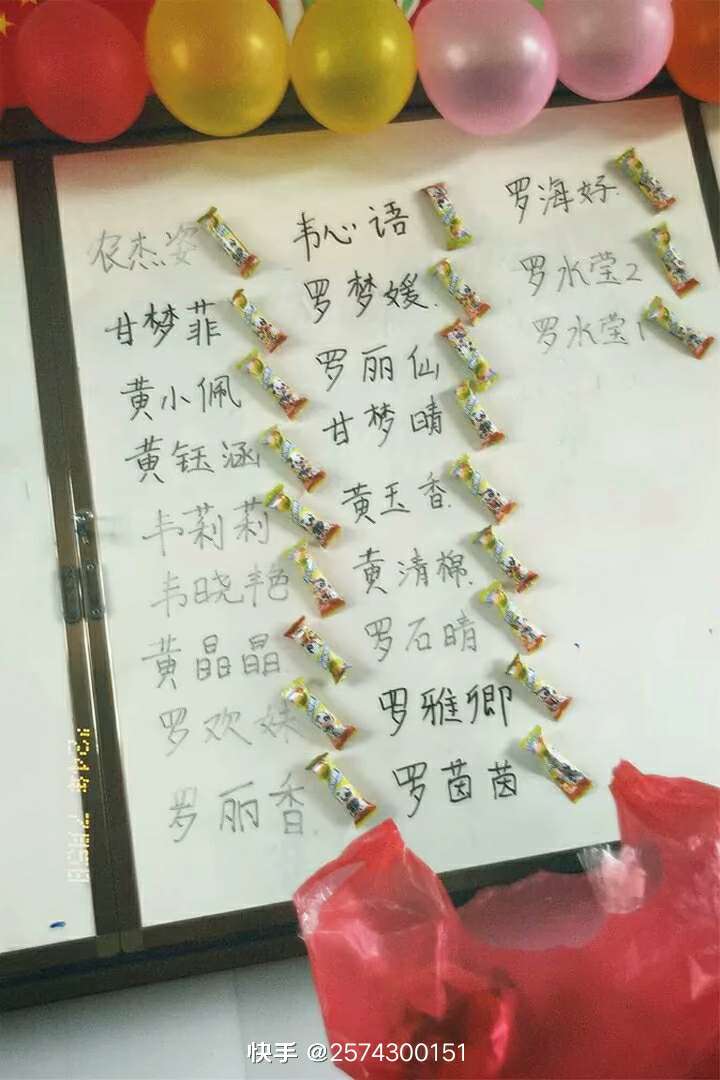 农杰姿
甘梦菲
黄小佩
黄钰涵
韦莉莉
韦晓艳
黄晶晶
罗欢妹
罗丽香
韦心语
罗梦媛
罗丽仙
甘梦晴
黄玉香
黄清棉
罗石晴
罗雅卿
罗茵茵
罗海好
罗水莹2
罗水莹1
快手 @2574300151